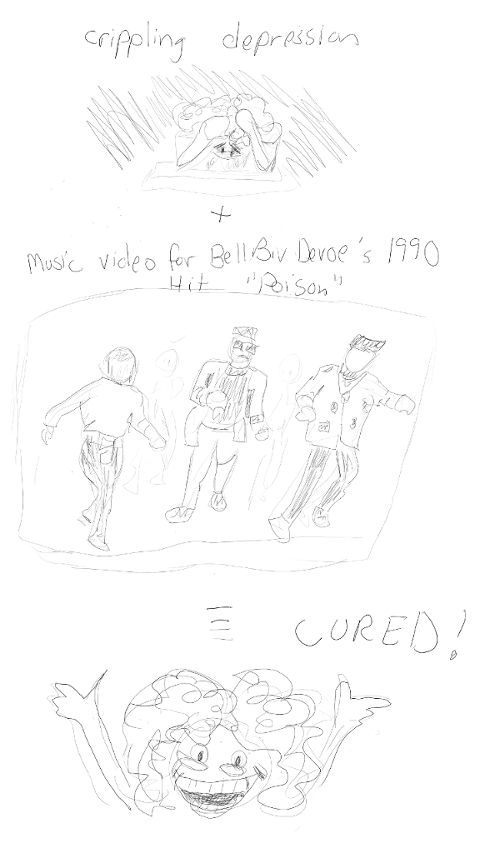 crippling depression
+
Music video for Bell Biv Devoe's 1990
Hit "Poison"
= CURED!